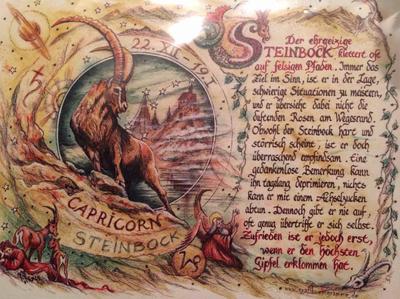 22.XII-19.I
CAPRICORN
STEINBOCK
Der ehrgeizige
STEINBOCK klettert oft
auf felsigen Pfaden. Immer das
Ziel im Sinn, ist er in der Lage,
schwierige Situacionen zu mastern,
und er übersieht dabei nicht die
duftenden Rosen am Wegesrand.
Obwohl der Steinbock hart und
störrisch scheint, ist er doch
überraschend empfindsam. Eine
gedankenlose Bemerkung kann
ihn tagelang deprimieren, nichts
kann er mit einem Achselzucken
abtun. Dennoch gibt er nie auf,
oft genug übertriffe er sich selbst.
Zufrieden ist er jedoch erst,
wenn er den höchsten
Gipfel erklommen hat.